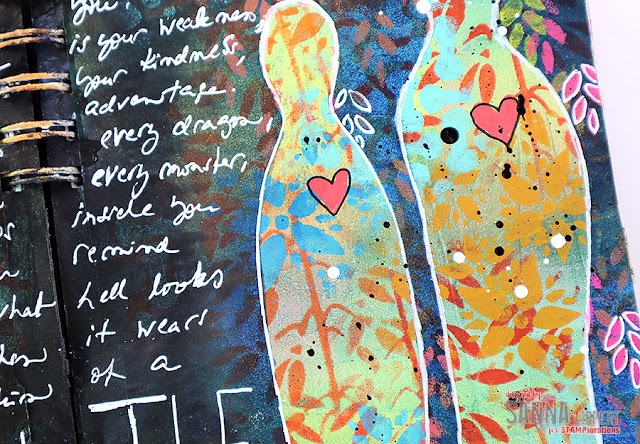 you.
is your weakness,
your kindness,
advantage.
every dragon,
every monster,
inside you
remind
hell looks
it wears
of a
what
SANNA
for STAMPlorations